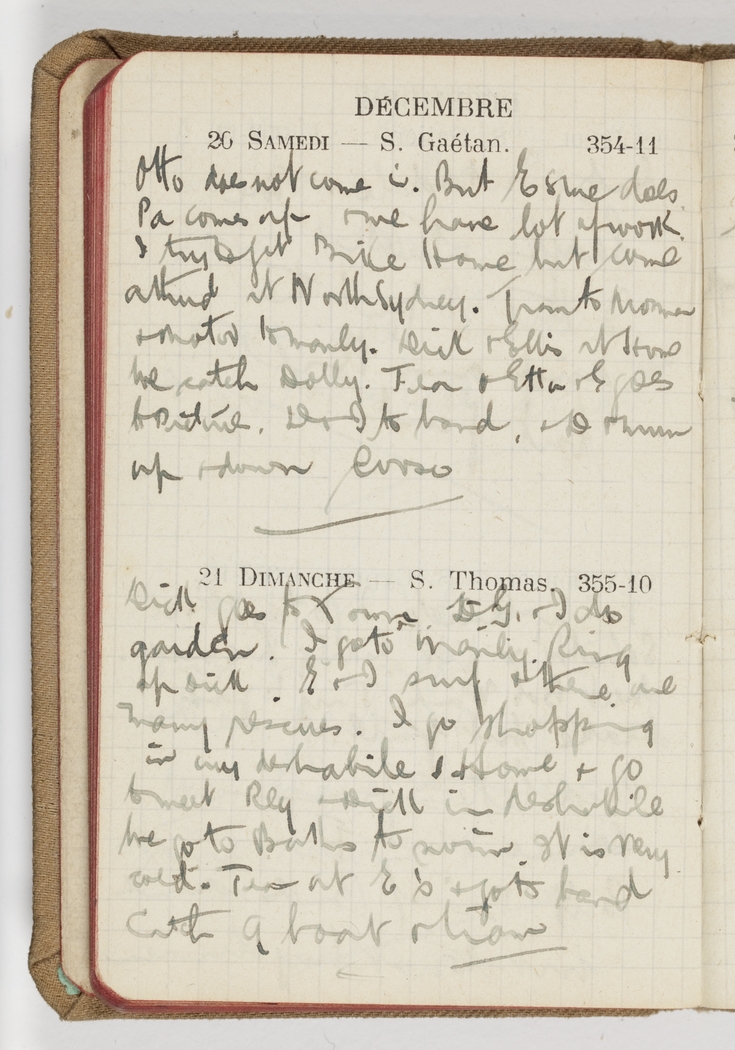 DÉCEMBRE
20 SAMEDI — S. Gaétan. 354-11
Otto does not come in. But Esme does.
Pa comes up & we have lot of work.
I try to get Bike Home but come
at North Sydney. Tram to
& motor to manly. Dick & Ellis at Home
We catch Dolly. Tea & Etta & E goes
to Picture. D & I to band, & D &
up & down Corso
21 DIMANCHE — S. Thomas. 355-10
Dick goes to Town. D. G. & I do
garden. I go to Manly. Ring
up Dick. E & I surf & there are
many rescues. I go shopping
in my deshabile & Home & go
to meet Rey & Dick in deshabile
We go to Baths to swim. It is very
cold. Tea at E's & go to band
Catch 9 boat & tram